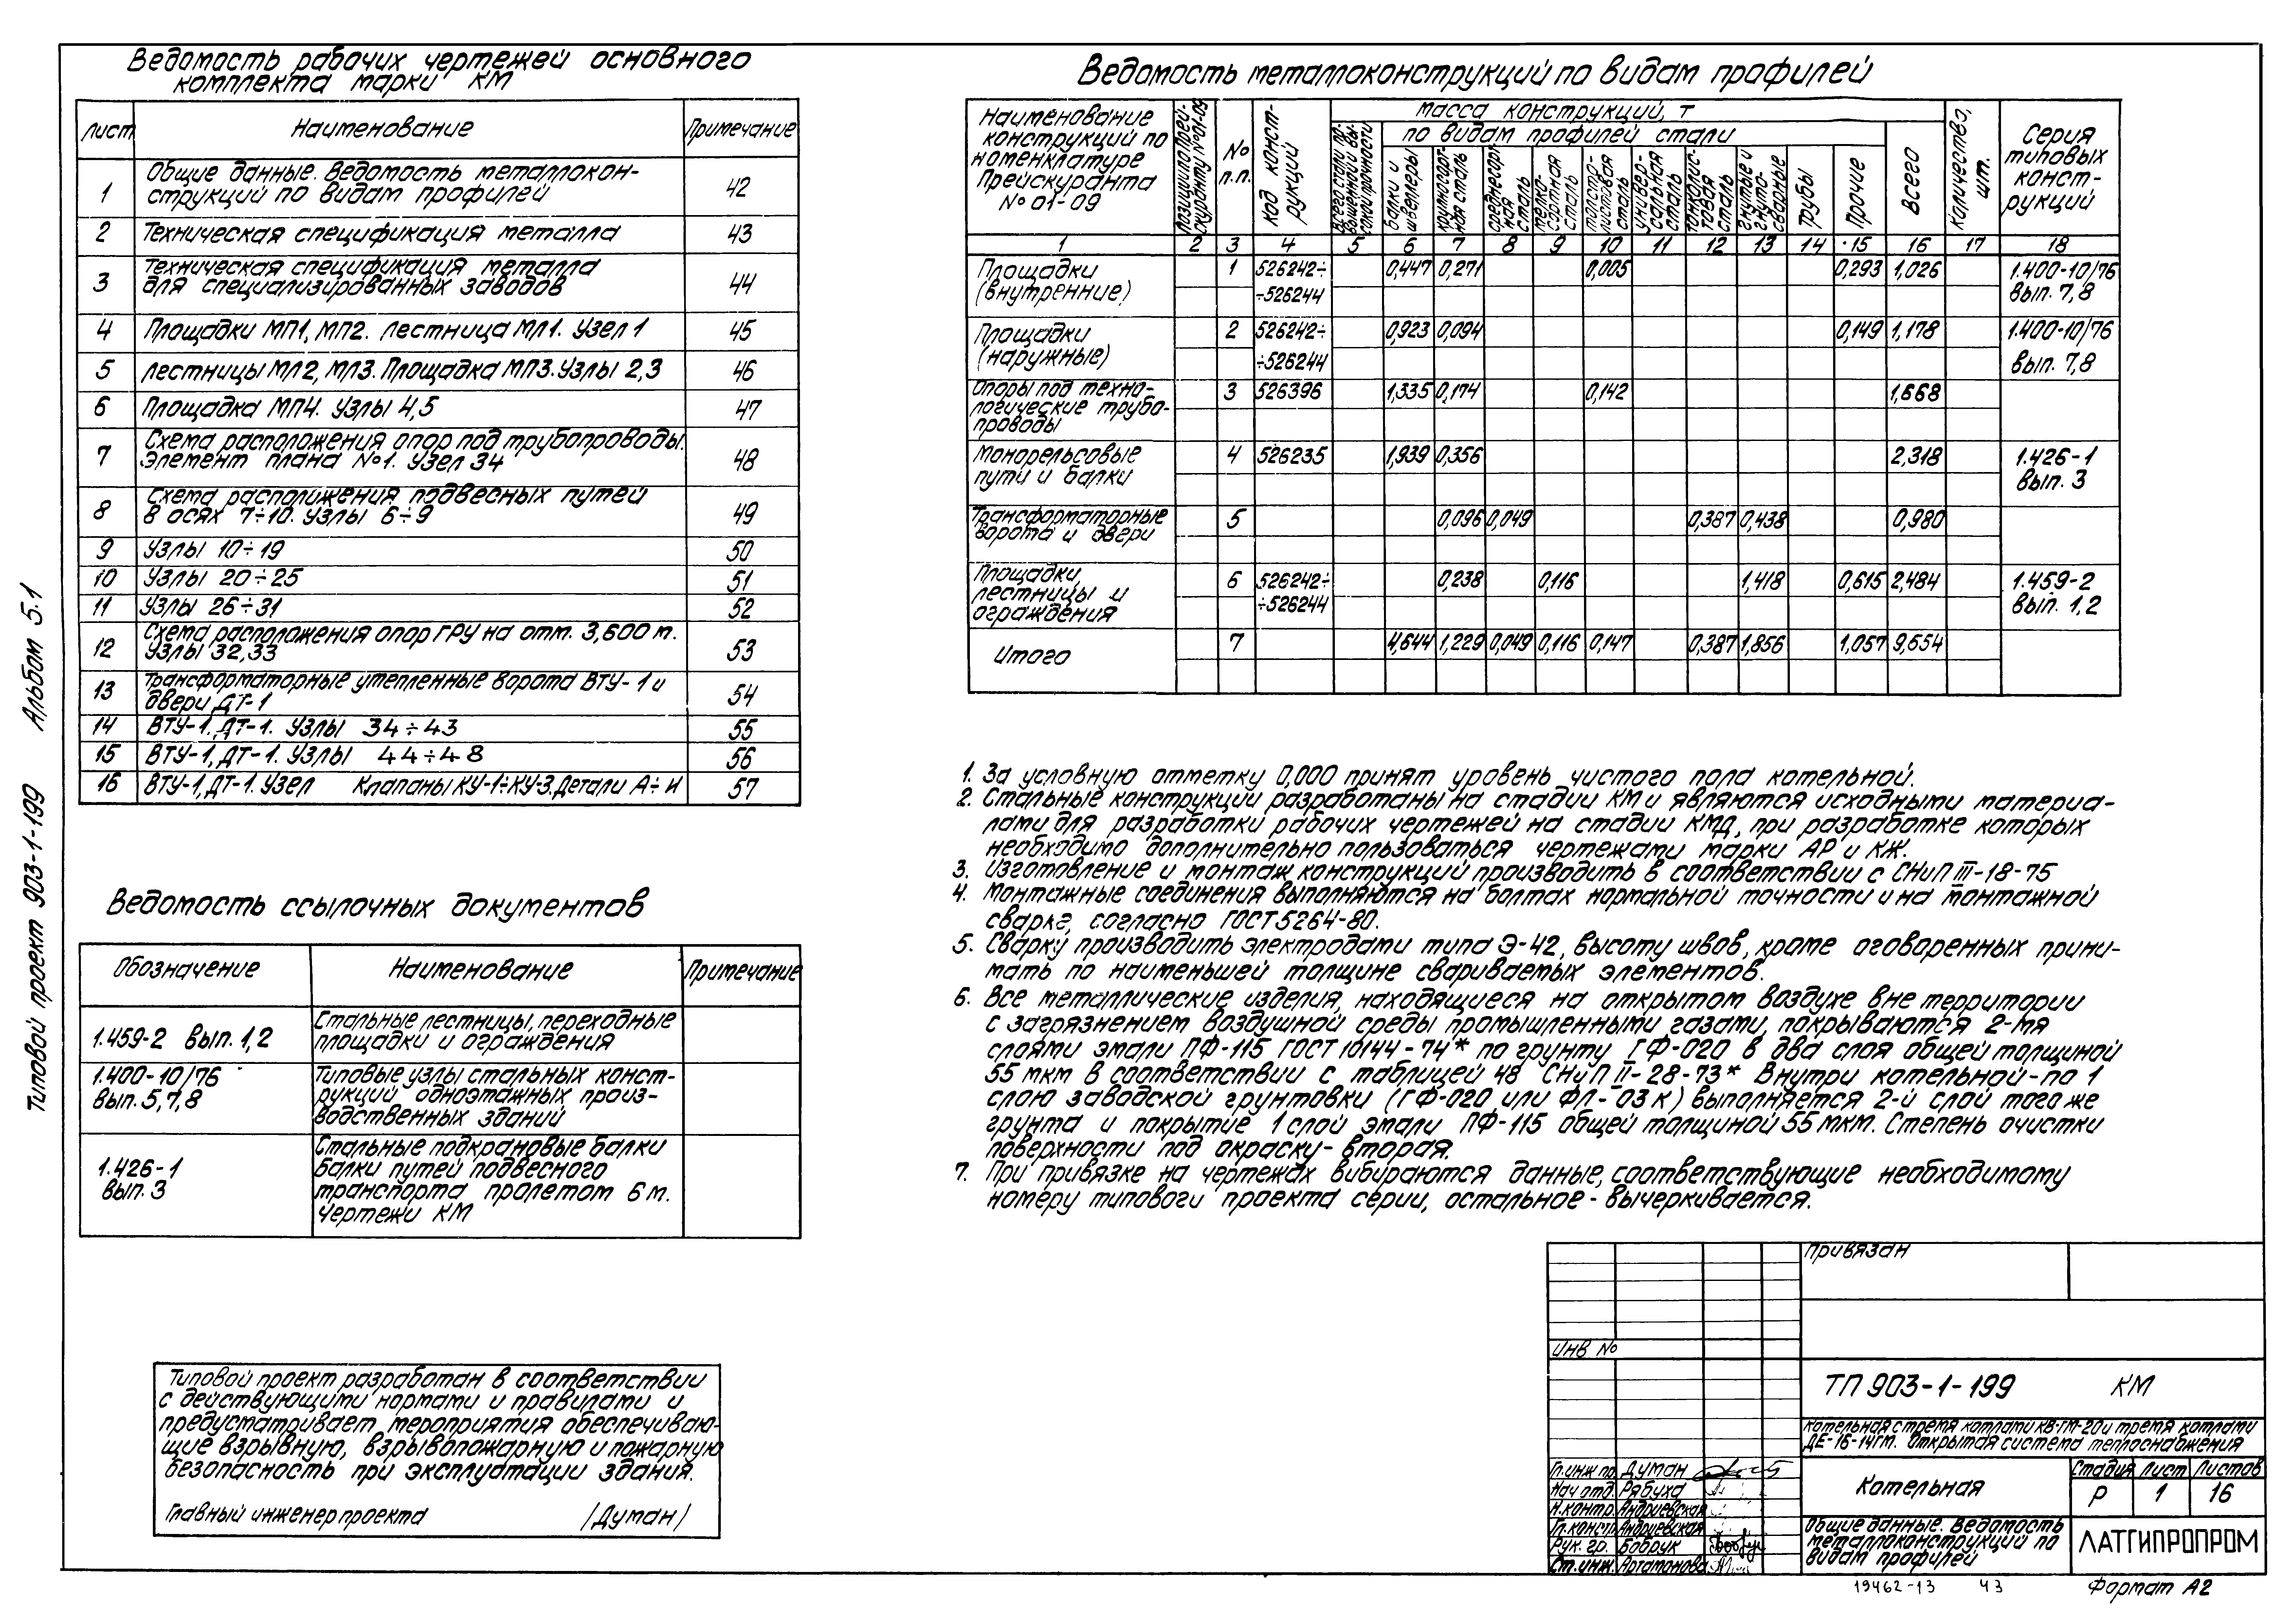 Ведомость рабочих чертежей основного
комплекта марки КМ
Лист Наименование Примечание
1 Общие данные. Ведомость металлокон-
струкций по видам профилей 42
2 Техническая спецификация металла 43
3 Техническая спецификация металла
для специализированных заводов 44
4 Площадки МП1, МП2. Лестница МЛ1. Узел 1 45
5 Лестницы МЛ2, МЛ3. Площадка МП3. Узлы 2,3 46
6 Площадка МП4. Узлы 4,5 47
7 Схема расположения опор под трубопроводы.
Элемент плана №1. Узел 34 48
8 Схема расположения подвесных путей
в осях 7÷10. Узлы 6÷9 49
9 Узлы 10÷19 50
10 Узлы 20÷25 51
11 Узлы 26÷31 52
12 Схема расположения опор ГРУ на отм. 3,600 м.
Узлы 32,33 53
13 Трансформаторные утепленные ворота ВТУ-1 и
двери ДТ-1 54
14 ВТУ-1, ДТ-1. Узлы 34÷43 55
15 ВТУ-1, ДТ-1. Узлы 44÷48 56
16 ВТУ-1, ДТ-1. Узел Клапаны КУ-1÷КУ-3. Детали А÷И 57
Ведомость ссылочных документов
Обозначение Наименование Примечание
1.459-2 вып. 1,2 Стальные лестницы, переходные
площадки и ограждения
1.400-10/76
вып. 5,7,8
Типовые узлы стальных конст-
рукций одноэтажных произ-
водственных зданий
1.426-1
вып. 3
Стальные подкрановые балки
Балки путей подвесного
транспорта пролетом 6 м.
Чертежи КМ
Типовой проект разработан в соответствии
с действующими нормами и правилами и
предусматривает мероприятия обеспечиваю-
щие взрывную, взрывопожарную и пожарную
безопасность при эксплуатации здания.
Главный инженер проекта /Думан/
Типовой проект 903-1-199 Альбом 5.1
Ведомость металлоконструкций по видам профилей
Наименование
конструкций по
номенклатуре
Прейскуранта
№ 01-09
Позиции по Прей-
скуранту №01-09
№
п.п.
Код конст-
рукций
Масса конструкций, т
Всего стали по-
вышенной и вы-
сокой прочности
по видам профилей стали
Балки и
швеллеры
Крупносорт-
ная сталь
Среднесорт-
ная
сталь
Мелко-
сортная
сталь
Толсто-
листовая
сталь
Универ-
сальная
сталь
Тонколис-
товая
сталь
Гнутые и
гнуто-
сварные
Трубы
Прочие
Всего
Количество,
шт.
Серия
типовых
конст-
рукций
1 2 3 4 5 6 7 8 9 10 11 12 13 14 15 16 17 18
Площадки
(внутренние)
1 526242÷ 0,447 0,271 0,005 0,293 1,026 1.400-10/76
÷526244 вып. 7,8
Площадки
(наружные)
2 526242÷ 0,923 0,094 0,149 1,178 1.400-10/76
÷526244 вып. 7,8
Опоры под техно-
логические трубо-
проводы
3 526396 1,335 0,174 0,142 1,668
Монорельсовые
пути и балки
4 526235 1,939 0,356 2,318 1.426-1
вып. 3
Трансформаторные
ворота и двери
5 0,096 0,049 0,387 0,438 0,980
Площадки,
лестницы и
ограждения
6 526242÷ 0,238 0,116 1,418 0,615 2,484 1.459-2
÷526244 вып. 1,2
Итого 7 4,644 1,229 0,049 0,116 0,147 0,387 1,856 1,057 9,654
1. За условную отметку 0,000 принят уровень чистого пола котельной.
2. Стальные конструкции разработаны на стадии КМ и являются исходными материа-
лами для разработки рабочих чертежей на стадии КМД, при разработке которых
необходимо дополнительно пользоваться чертежами марки АР и КЖ.
3. Изготовление и монтаж конструкций производить в соответствии с СНиП III-18-75
4. Монтажные соединения выполняются на болтах нормальной точности и на монтажной
сварке, согласно ГОСТ 5264-80.
5. Сварку производить электродами типа Э-42, высоту швов, кроме оговоренных прини-
мать по наименьшей толщине свариваемых элементов.
6. Все металлические изделия, находящиеся на открытом воздухе вне территории
с загрязнением воздушной среды промышленными газами, покрываются 2-мя
слоями эмали ПФ-115 ГОСТ 10144-74* по грунту ГФ-020 в два слоя общей толщиной
55 мкм в соответствии с таблицей 48 СНиП II-28-73* Внутри котельной-по 1
слою заводской грунтовки (ГФ-020 или ФЛ-03К) выполняется 2-й слой того же
грунта и покрытие 1 слой эмали ПФ-115 общей толщиной 55 мкм. Степень очистки
поверхности под окраску-вторая.
7. При привязке на чертежах вибираются данные, соответствующие необходимому
номеру типовоги проекта серии, остальное - вычеркивается.
Привязан
Инв №
ТП 903-1-199 КМ
Котельная с тремя котлами КВ-ГМ-20 и тремя котлами
ДЕ-16-14ГМ. Открытая система теплоснабжения
Гл.инж.пр. Думан
Нач.отд. Рябуха
Н.контр. Андриевская
Гл.констр. Андриевская
Рук. гр. Бобрук
Ст.инж. Артамонова
Котельная
Стадия Лист Листов
Р 1 16
Общие данные. Ведомость
металлоконструкций по
видам профилей
ЛАТГИПРОПРОМ
19462-13 43 Формат А2